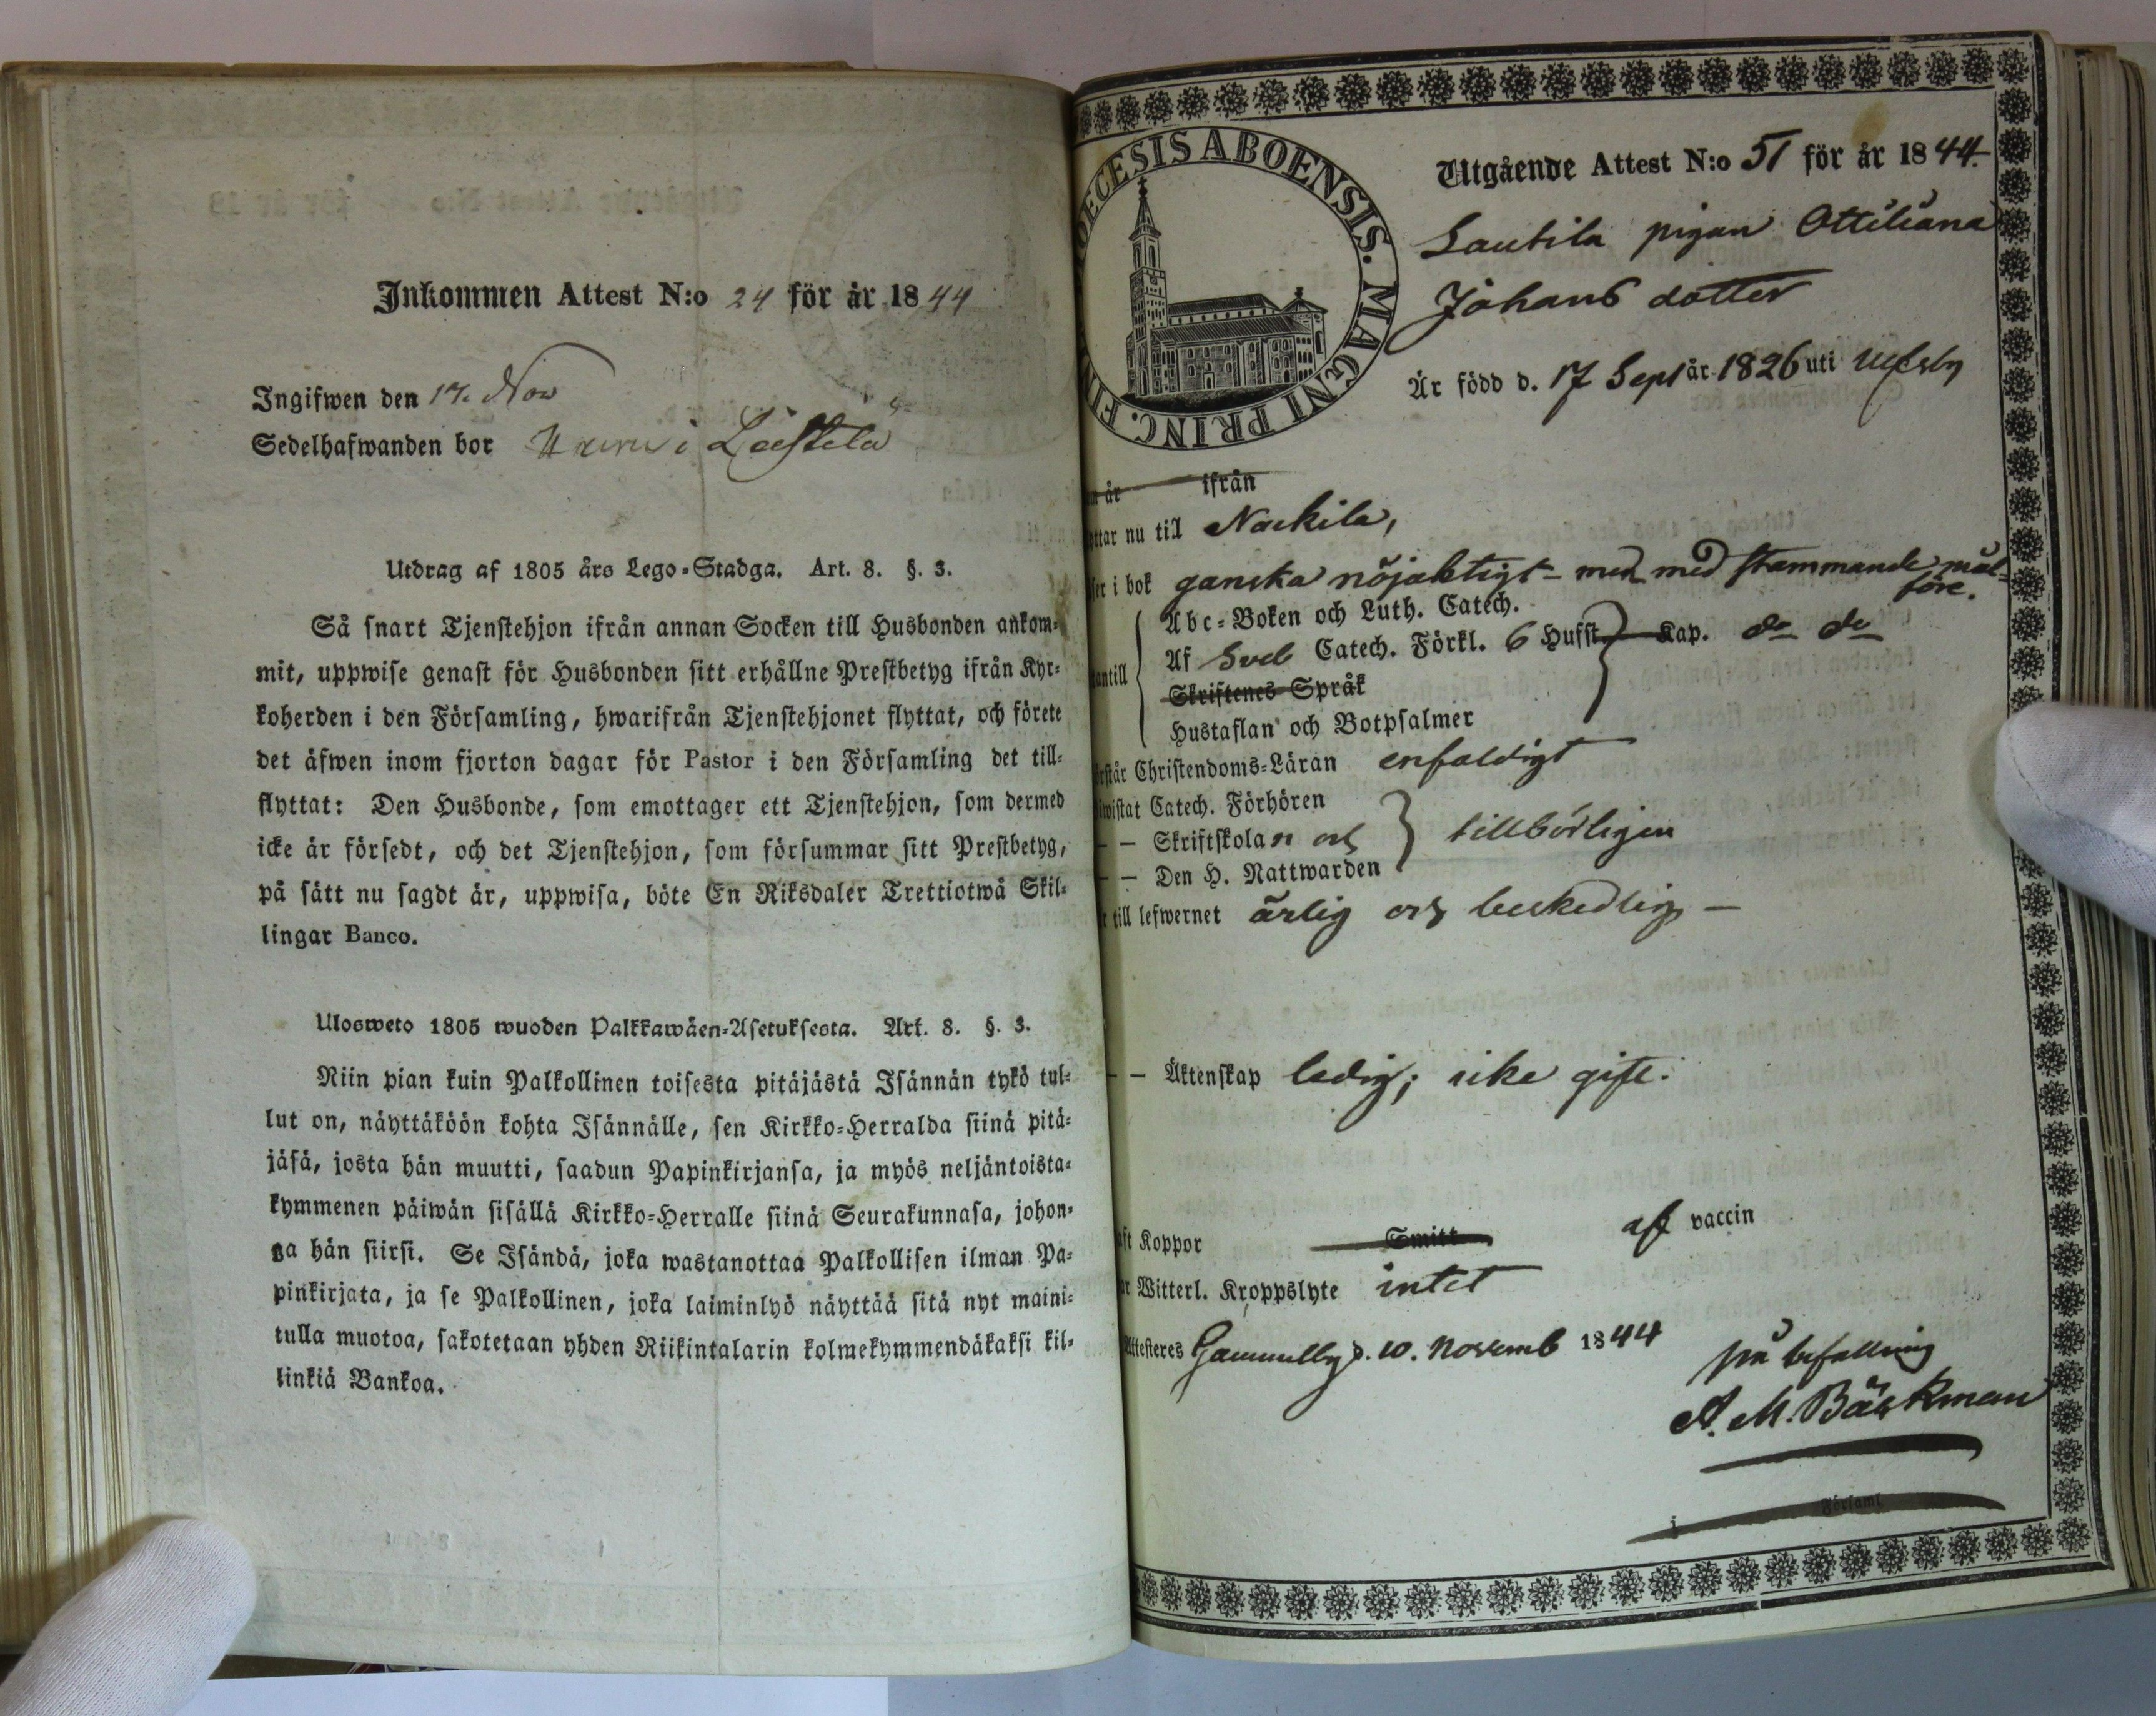 Inkommen Attest N:o 24 för år 1844
Ingifwen den 17. Nov
Sedelhafwanden bor i Leistilä
Utdrag af 1805 års Lego-Stadga. Art. 8. §. 3.
Så snart Tjenstehjon ifrån annan Socken till Husbonden ankom-
mit, uppwise genast för Husbonden sitt erhållne Prestbetyg ifrån Kyr-
koherden i den Församling, hwarifrån Tjenstehjonet flyttat, och förete
det äfwen inom fjorton dagar för Pastor i den Församling det till-
flyttat: Den Husbonde, som emottager ett Tjenstehjon, som dermed
icke är försedt, och det Tjenstehjon, som försummar sitt Prestbetyg,
på sätt nu sagdt är, uppwisa, böte En Riksdaler Trettiotwå Skil-
lingar Banco.
Ulosweto 1805 wuoden Palkkawäen-Asetuksesta. Art. 8. §. 3.
Niin pian kuin Palkollinen toisesta pitäjästä Isännän tykö tul-
lut on, näyttäköön kohta Isännälle, sen Kirkko-Herralda siinä pitä-
jäsä, josta hän muutti, saadun Papinkirjansa, ja myös neljäntoista-
kymmenen päiwän sisällä Kirkko-Herralle siinä Seurakunnasa, johon-
ga hän siirsi. Se Isändä, joka wastanottaa Palkollisen ilman Pa-
pinkirjata, ja se Palkollinen, joka laiminlyö näyttää sitä nyt maini-
tulla muotoa, sakotetaan yhden Riikintalarin kolmekymmendäkaksi kil-
linkiä Bankoa.
DIOECESIS ABOENSIS. MAGNI PRINC. FIN
Utgående Attest N:o 51 för år 1844.
Lautila pigan Ottiliana
Johans dotter
Är född d. 17 Sept år 1826 uti Ulfsby
år ifrån
ttar nu till Nackila,
ser i bok ganska nöjaktigt - men med stammande mål-
före.
Abc-Boken och Luth. Catech.
antill Af Sveb Catech. Förkl. 6 Hufst. Kap. do do
Skriftenes Språk
Hustaflan och Botpsalmer
rstår Christendoms-Läran enfaldigt
iwistat Catech. Förhören
— — Skriftskolan och tillbörligen
— — Den H. Nattwarden
r till lefwernet ärlig och beskedlig —
— — Äktenskap ledig; icke gift.
aft Koppor Smitt af vaccin
ar Witterl. Kroppslyte intet
Attesteres Gammelby d. 10. Novemb 1844
på befallning
A. M. Bäckman
i Församl.